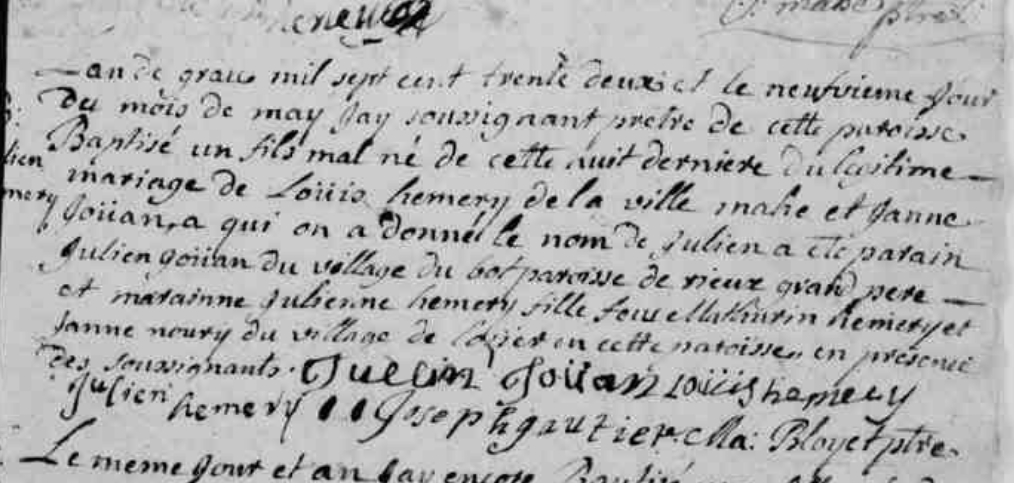 mahé ptre
Lan de grace mil sept cent trente deux et le neufvieme jour
Du mois de may jay soussignant pretre de cette paroisse
Baptisé un fils mal né de cette nuit derniere du legitime
lien
mariage de Loüis hemery de la ville mahe et janne
mery
joüan, a qui on a donné le nom de julien a été parain
julien joüan du village du bot paroisse de rieux grand pere
et marainne julienne hemery fille feue Mathurin hemery et
janne noury du village de en cette paroisse, en presence
des soussignants.
Jullin Joüan Loüis hemery
julien hemery Joseph gautier. Ma: Bloyet ptre.
Le meme jour et an jay encore Baptisé